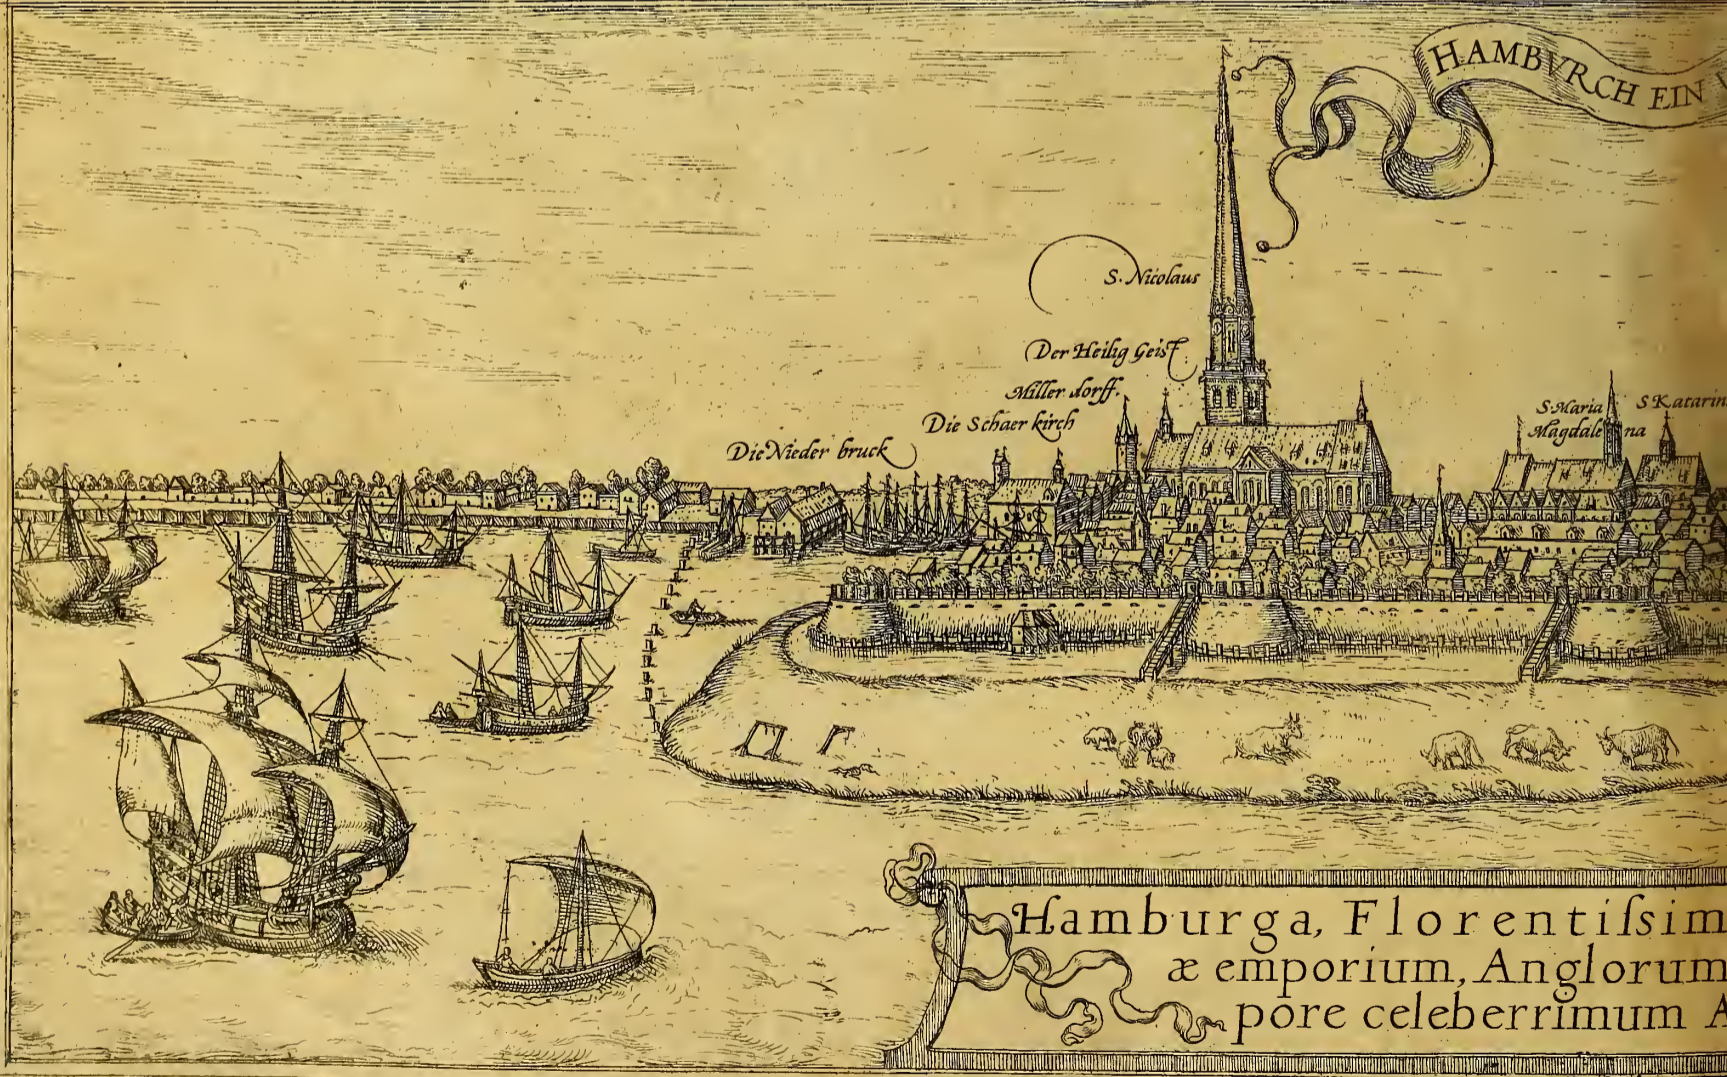 HAMBVRCH EIN
S. Nicolaus
Der Heilig Geist
Miller dorff.
Die Schaer kirch
Die Nieder bruck
S. Maria
Magdalena
S Katarin
Hamburga, Florentiſsim
æ emporium, Anglorum
pore celeberrimum A